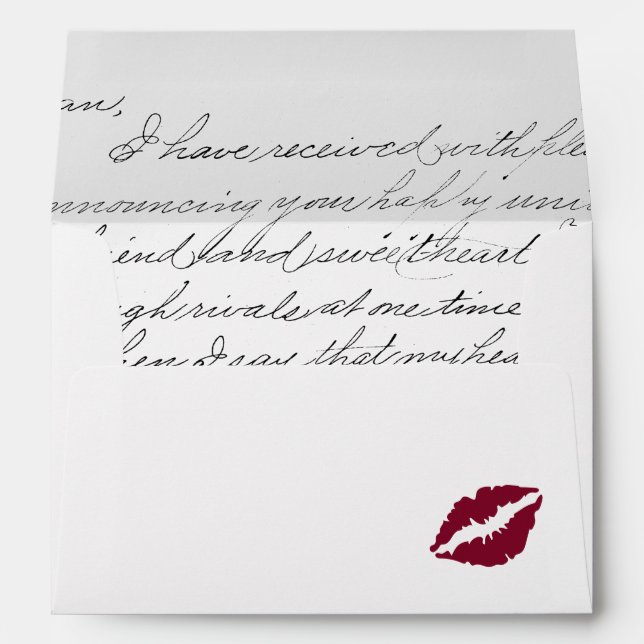 an,
I have received with plea
nnouncing your happy uni
iend and sweetheart
gh rivals at one time
hen I say that my hea